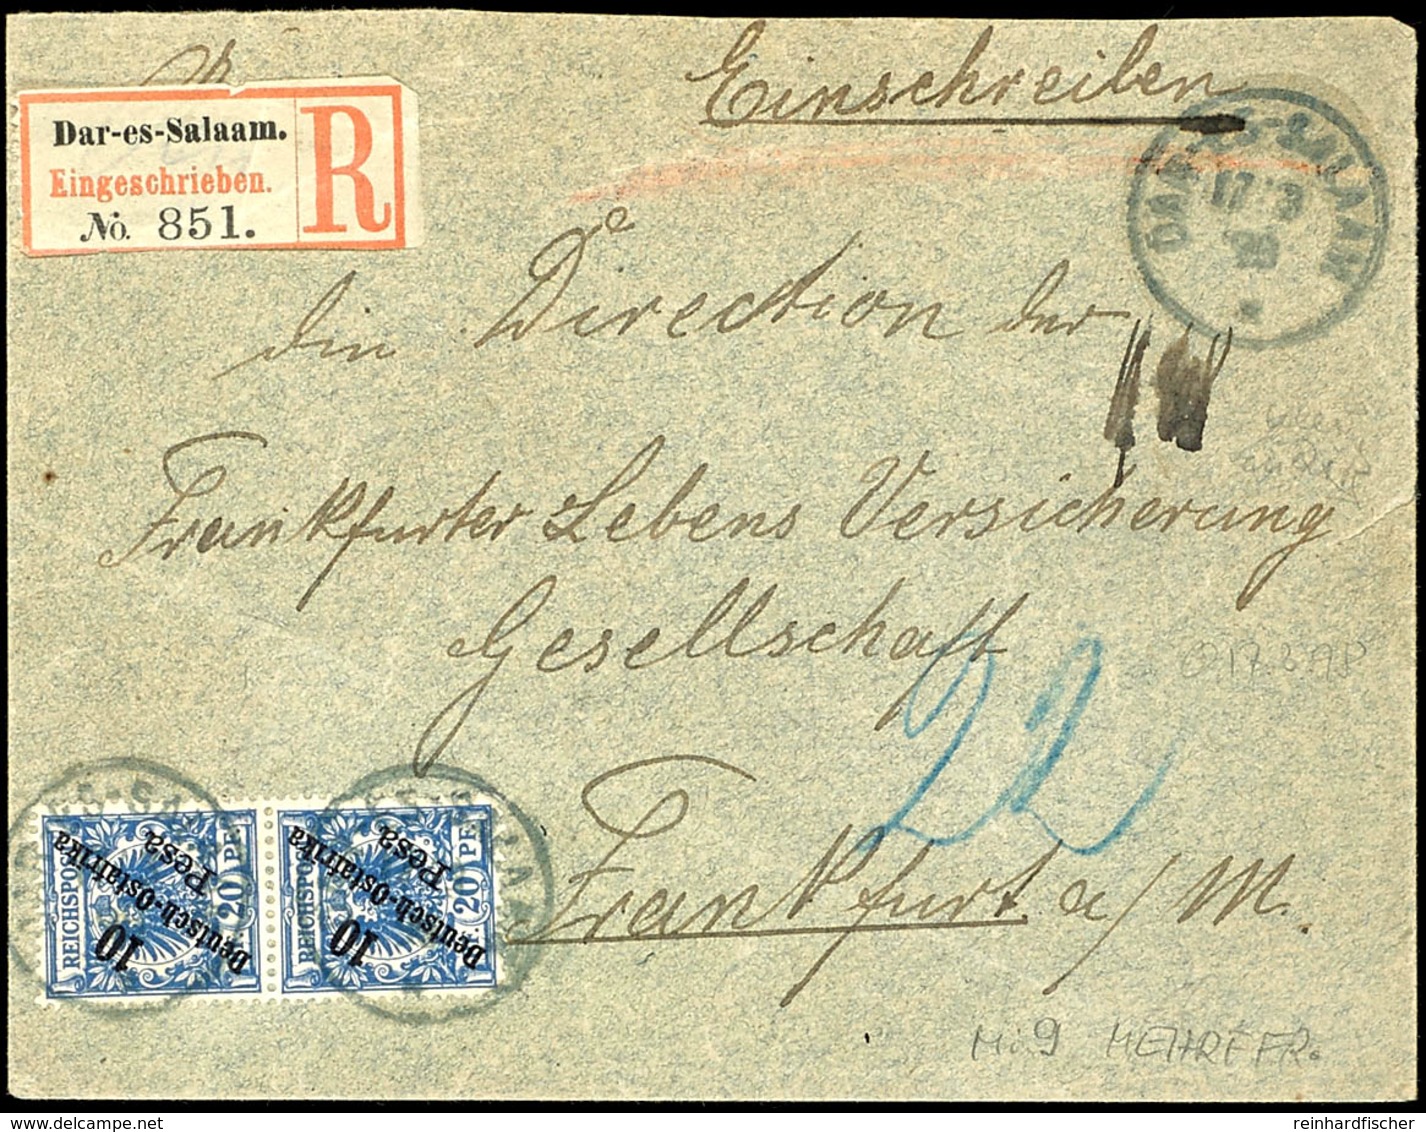 Einschreiben
Dar-es-Salaam.
Eingeschrieben.
No. 851.
R
DAR-ES-SALAAM
17 3
98
die Direction der
Frankfurter Lebens Versicherung
Gesellschaft
22
Frankfurt a/M.
REICHSPOST
20 PF
Deutsch-Ostafrika
10
Pesa
REICHSPOST
20 PF
Deutsch-Ostafrika
10
Pesa
17.3.98
Mi 9 MEHRFFR.
reinhardfischer